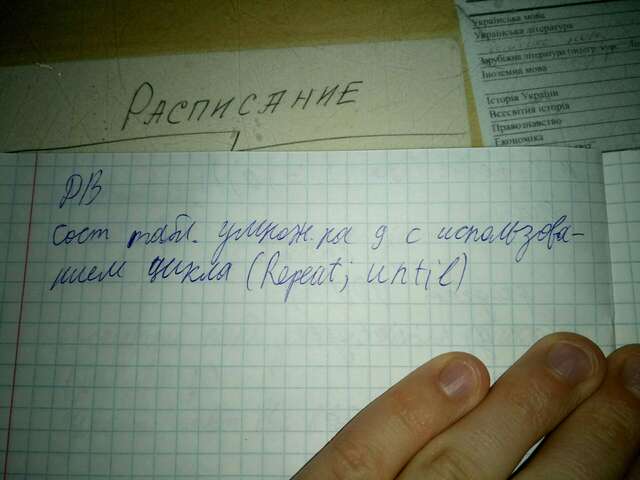 Українська мова
Українська література
Зарубіжна література (інтегр. кур.
Іноземна мова
Історія України
Всесвітня історія
Правознавство
Економіка
РАСПИСАНИЕ
сост табл. умнож. на 9 с использова-
нием цикла (Repeat; until)